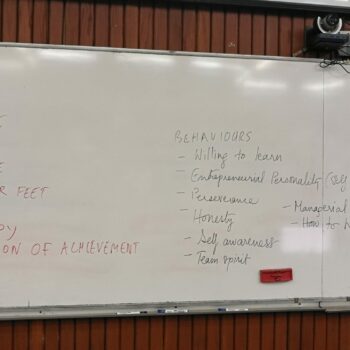 E
R FEET
ION OF ACHIEVEMENT
BEHAVIOURS
- Willing to learn
- Entrepreneurial Personality (self
- Perseverance
- Honesty
- Self awareness
- Team spirit
- Managerial
- How to